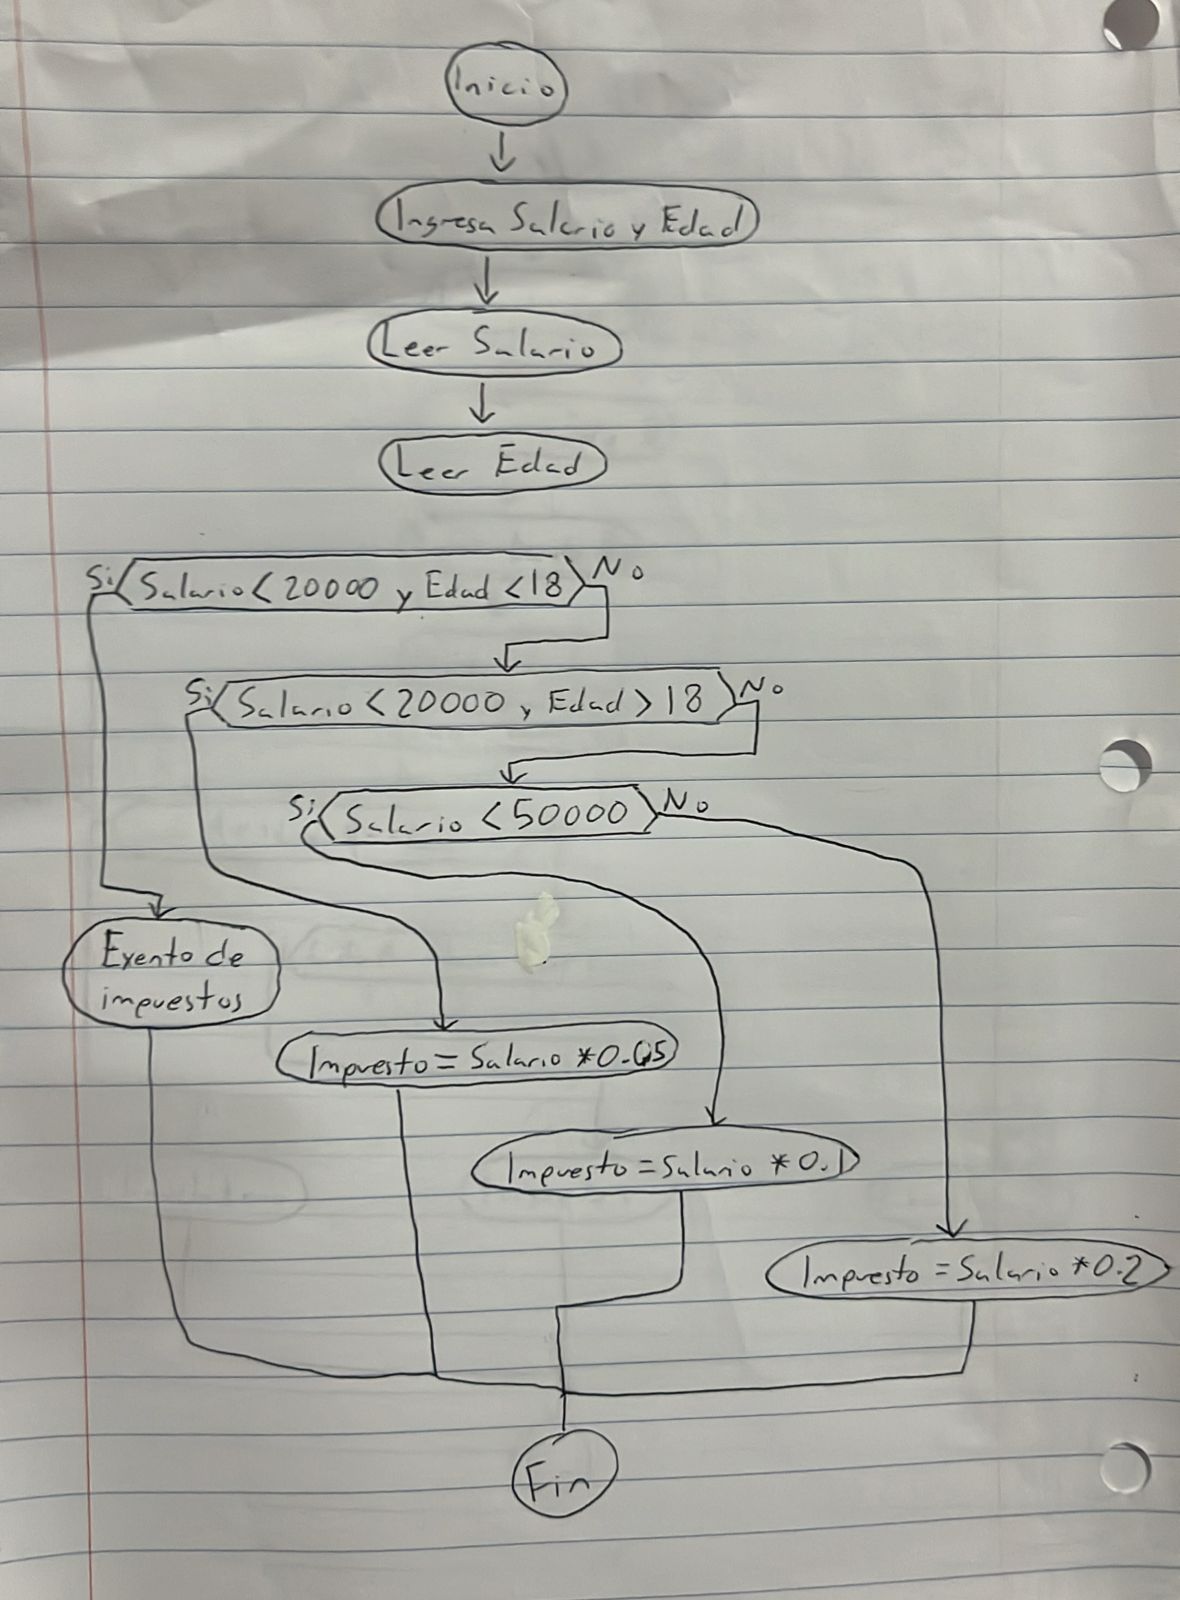 Inicio
Ingresa Salario y Edad
Leer Salario
Leer Edad
Si Salario < 20000 y Edad < 18 No
Si Salario < 20000 y Edad > 18 No
Si Salario < 50000 No
Exento de
impuestos
Impuesto = Salario * 0.05
Impuesto = Salario * 0.1
Impuesto = Salario * 0.2
Fin